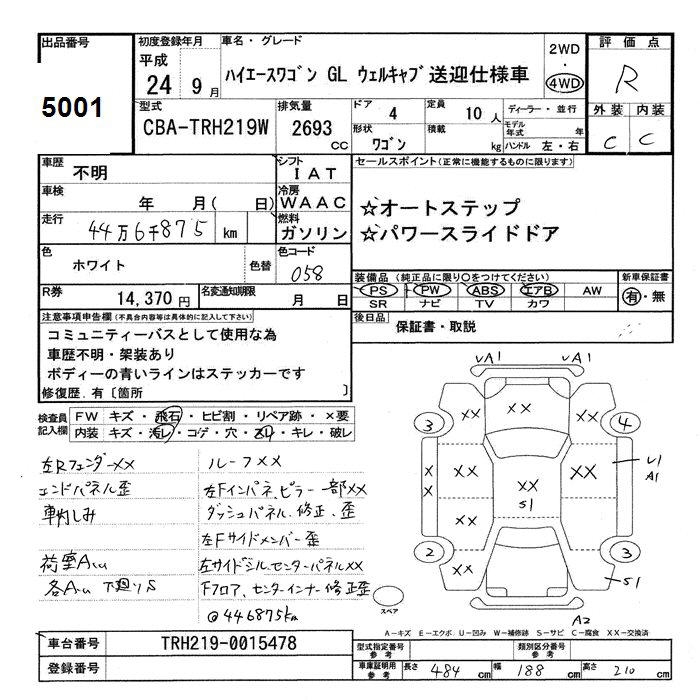 出品番号
5001
初度登録年月
平成
24 9月
車名・グレード
ハイエースワゴン GL ウェルキャブ 送迎仕様車
2WD
・
4WD
評価点
R
外装 内装
C C
型式
CBA-TRH219W
排気量
2693
CC
ドア 4
形状 ワゴン
定員 10 人
積載 kg
ディーラー・並行
モデル年式 年
ハンドル 左・右
車歴 不明
車検 年 月( 日)
走行 44万6千875 km
シフト IAT
冷房 WAAC
燃料 ガソリン
色 ホワイト 色替
色コード 058
R券 14,370円
名変通知期限 月 日
セールスポイント(正常に機能するものに限ります)
☆オートステップ
☆パワースライドドア
装備品 (純正品に限り○をつけてください)
PS PW ABS エアB AW
SR ナビ TV カワ
新車保証書
有・無
後日品 保証書・取説
注意事項申告欄(不具合内容等は具体的に記入して下さい)
コミュニティーバスとして使用な為
車歴不明・架装あり
ボディーの青いラインはステッカーです
修復歴.有〔箇所 〕
検査員記入欄
FW キズ・飛石・ヒビ割・リペア跡・×要
内装 キズ・汚レ・コゲ・穴・スレ・キレ・破レ
左RフェンダーXX
エンドパネル歪
荷座Aル
ルーフXX
左Fインパネ、ピラー一部XX
ダッシュパネル.修正、歪
左Fサイドメンバー歪
左サイドシル.センターパネルXX
Fフロア、センターインナー修正歪
@446875km
UA1 UA1
XX XX
3 4
XX XX XX XX
U1
A1
S1
XX
2 3
XX
S1
A2
スペア
A-キズ E-エクボ U-凹み W-補修跡 S-サビ C-腐食 XX-交換済
車台番号 TRH219-0015478
登録番号
型式指定番号参考
類別区分番号参考
車庫証明用参考 長さ 484 cm 幅 188 cm 高さ 210 cm